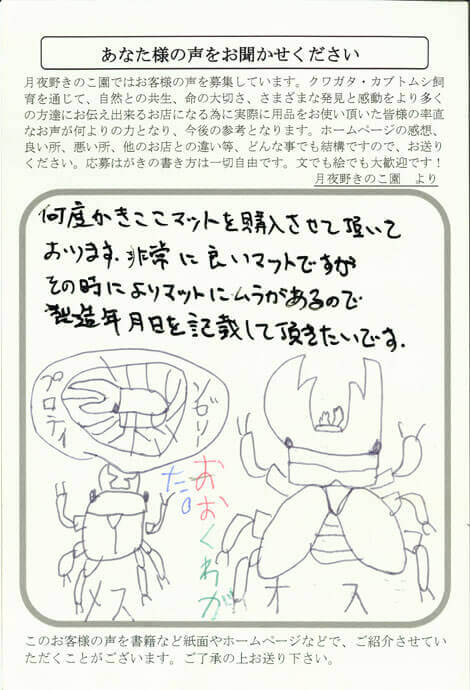 あなた様の声をお聞かせください
月夜野きのこ園ではお客様の声を募集しています。クワガタ・カブトムシ飼
育を通じて、自然との共生、命の大切さ、さまざまな発見と感動をより多く
の方達にお伝え出来るお店になる為に実際に用品をお使い頂いた皆様の率直
なお声が何よりの力となり、今後の参考となります。ホームページの感想、
良い所、悪い所、他のお店との違い等、どんな事でも結構ですので、お送り
ください。応募はがきの書き方は一切自由です。文でも絵でも大歓迎です！
月夜野きのこ園　より
何度かきここマットを購入させて頂いて
おります．非常に良いマットですが
その時によりマットにムラがあるので
製造年月日を記載して頂きたいです．
プロティ
ゼリー
おおくわが
だ。
メス
オス
このお客様の声を書籍など紙面やホームページなどで、ご紹介させてい
ただくことがございます。ご了承の上お送り下さい。